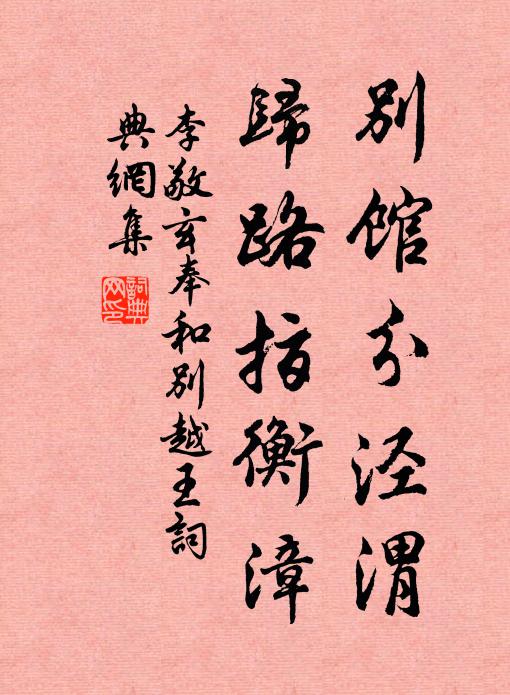 别馆分泾渭
歸路指衡漳
李敬玄奉和別越王詞
典網集
詞典
网印